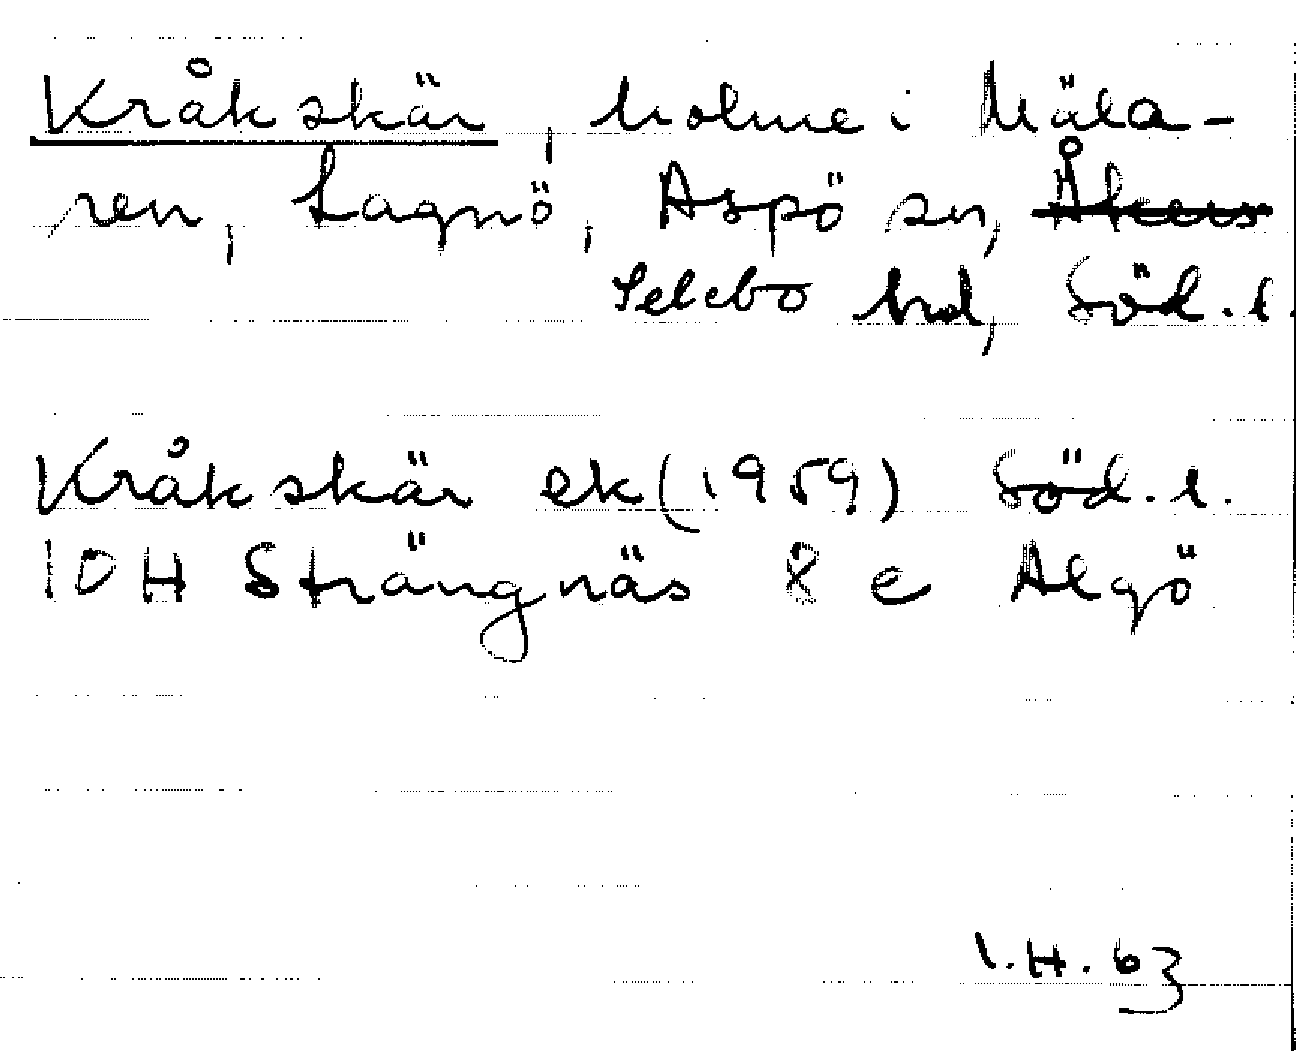 Kråkskär, holme i Mäla-
ren, Lagnö, Aspö sn, Åkers
Selebo hd, Söd.l.
Kråkskär ek (1959) Söd.l.
10H Strängnäs 8 e Algö
I.H. 63